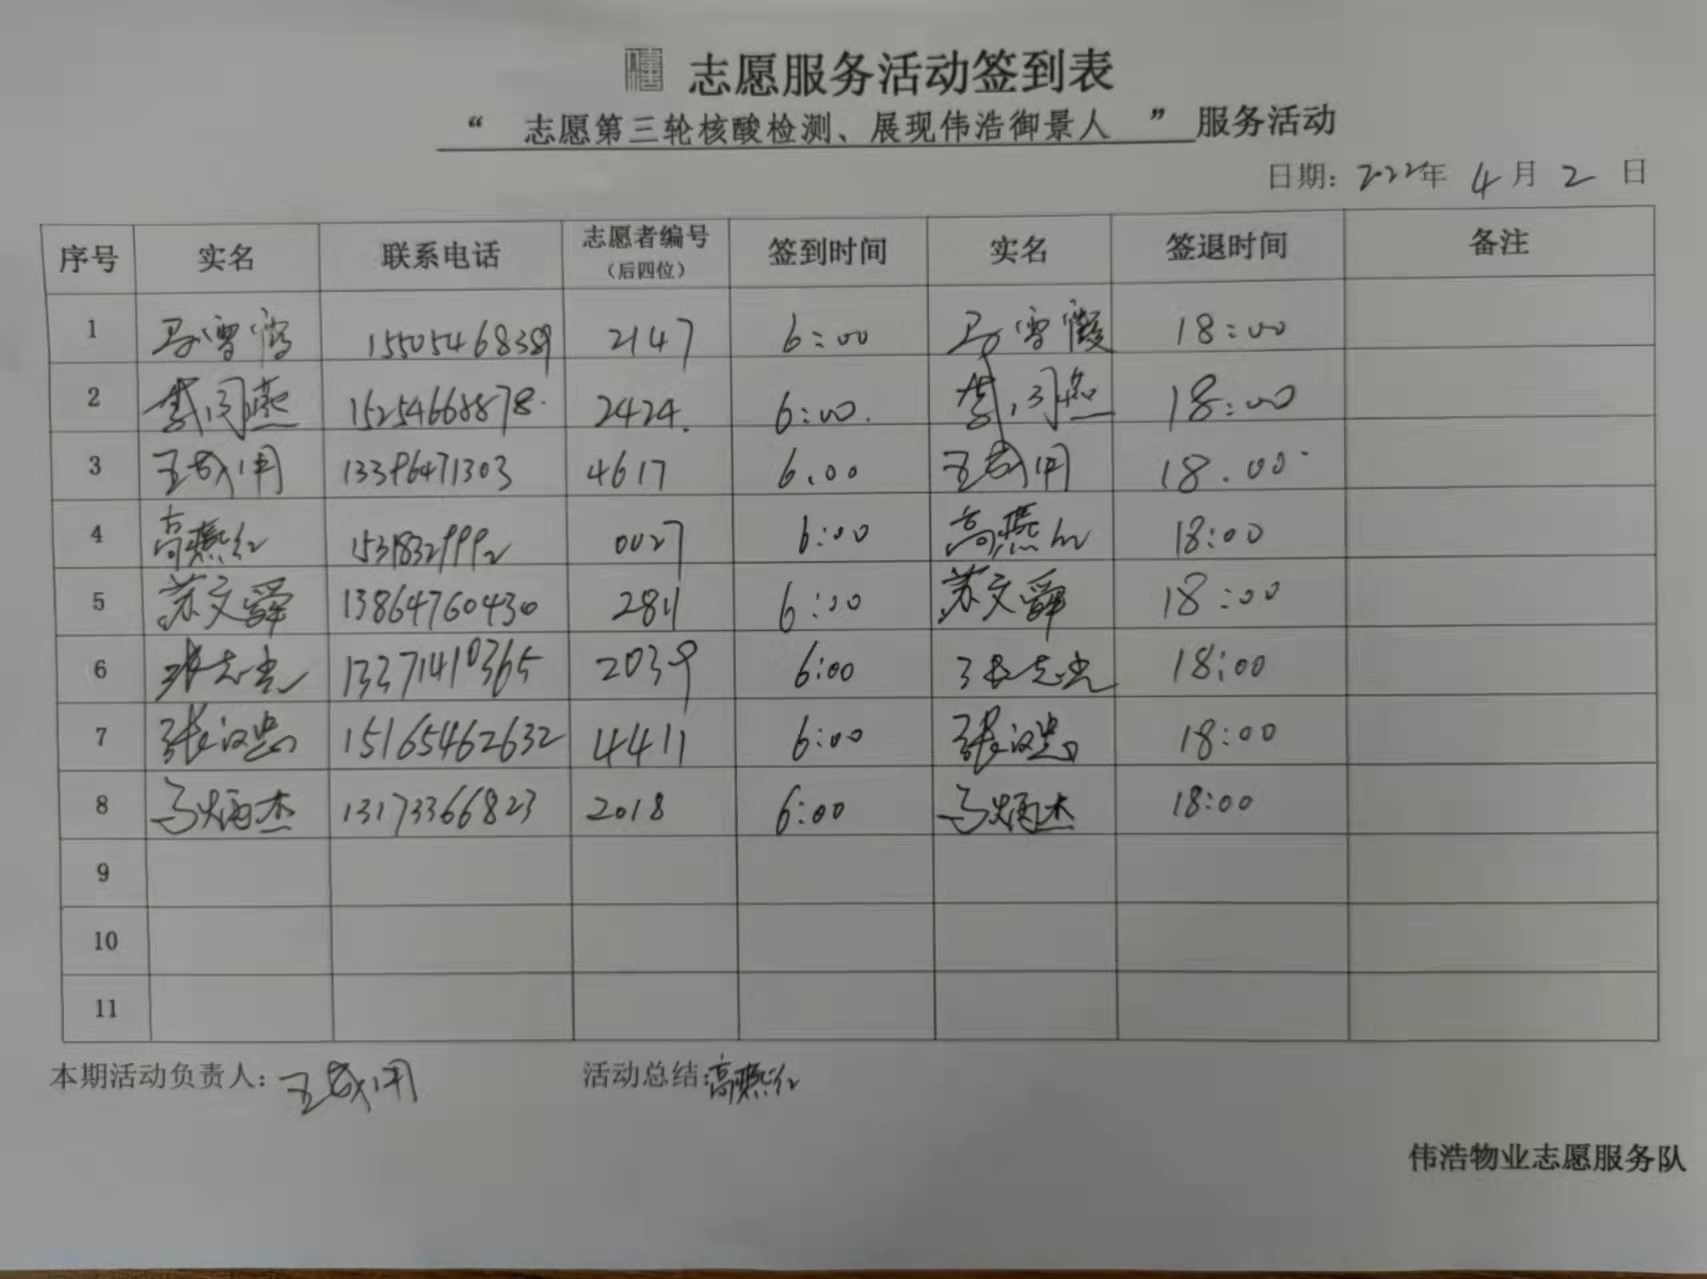 志愿服务活动签到表
“ 志愿第三轮核酸检测、展现伟浩御景人 ”服务活动
日期：2022年 4月 2 日
序号 实名 联系电话 志愿者编号（后四位） 签到时间 实名 签退时间 备注
1 15505468389 2147 6:00 18:00
2 15254668878 2424. 6:00. 18:00
3 13396471303 4617 6.00 18.00
4 高燕红 15318329992 0027 6:00 高燕红 18:00
5 苏文舜 13864760430 2811 6:00 苏文舜 18:00
6 张志光 13371410365 2039 6:00 张志光 18:00
7 张汉忠 15165462632 4411 6:00 张汉忠 18:00
8 马炳杰 13173366823 2018 6:00 马炳杰 18:00
9
10
11
本期活动负责人： 活动总结：高燕红
伟浩物业志愿服务队